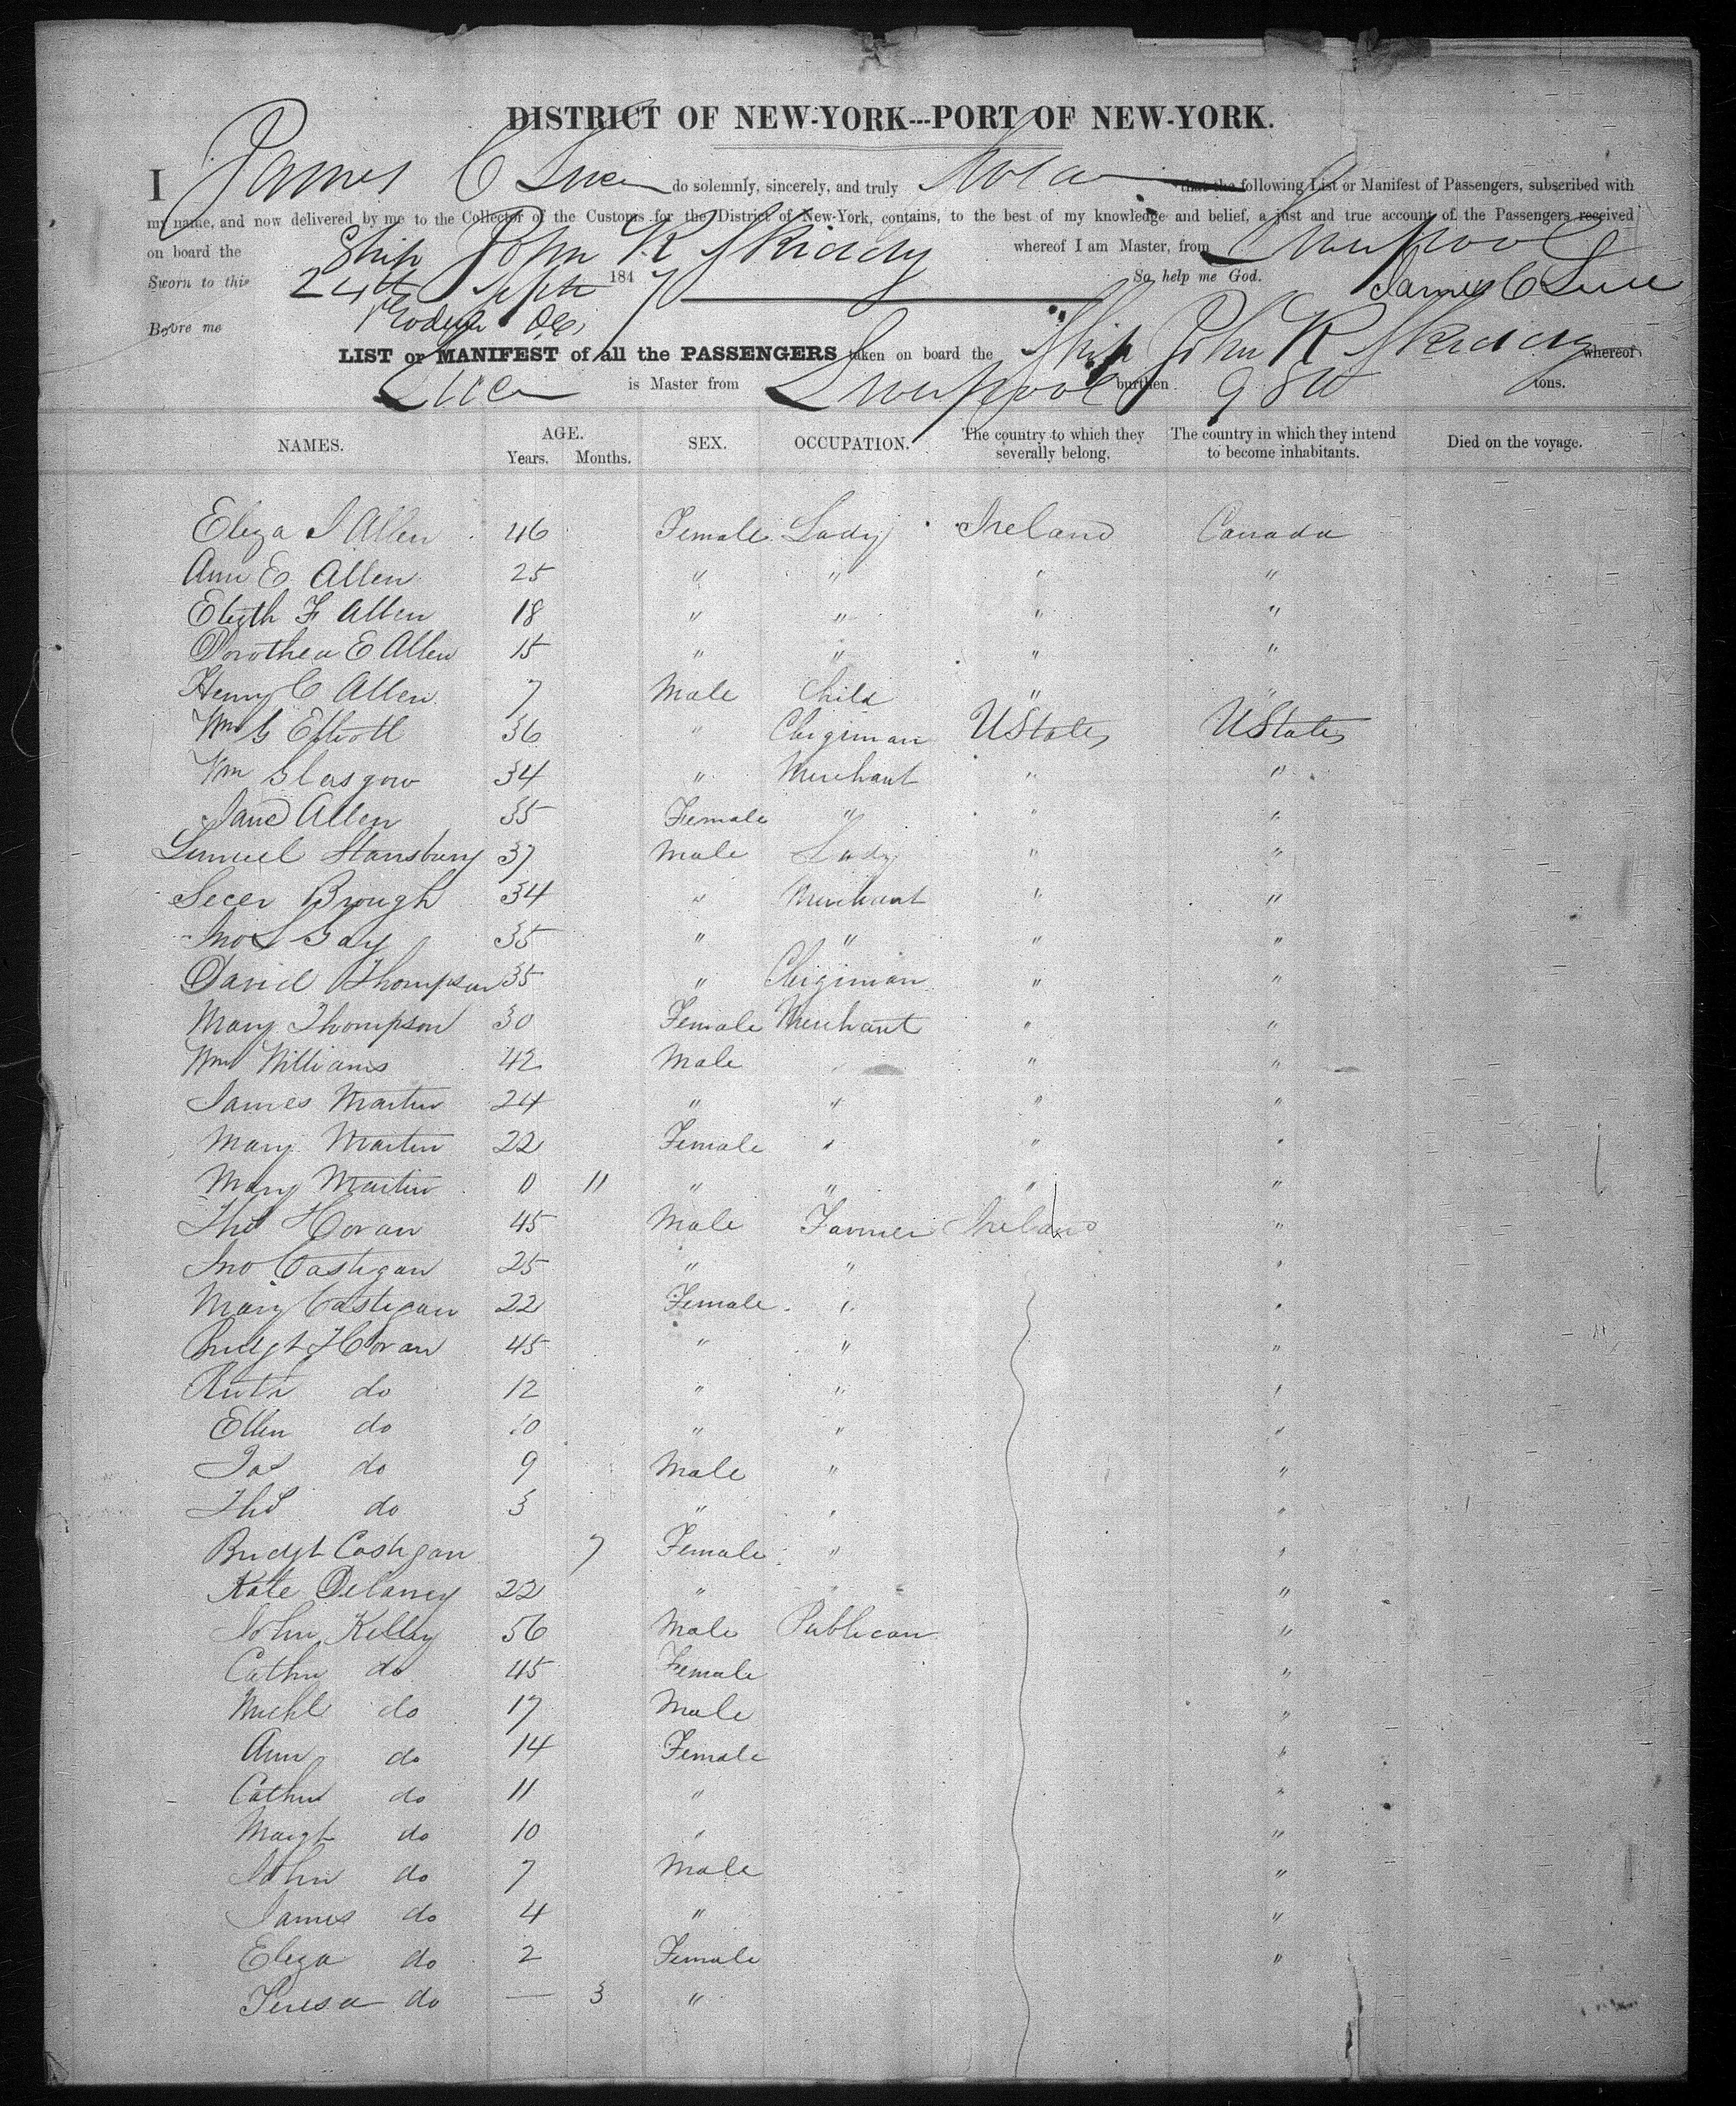 DISTRICT OF NEW-YORK---PORT OF NEW-YORK.
I James C Luce do solemnly, sincerely, and truly that the following List or Manifest of Passengers, subscribed with
my name, and now delivered by me to the Collector of the Customs for the District of New-York, contains, to the best of my knowledge and belief, a just and true account of the Passengers received
on board the Ship John R Skiddy whereof I am Master, from Liverpool
Sworn to this 24th Sept 1847 So help me God. James C Luce
Before me
LIST or MANIFEST of all the PASSENGERS taken on board the Ship John R Skiddy whereof
Luce is Master from Liverpool burthen tons.
NAMES. AGE. Years. Months. SEX. OCCUPATION. The country to which they severally belong. The country in which they intend to become inhabitants. Died on the voyage.
Eliza J Allen 46 Female Lady Ireland Canada
Ann E Allen 25 " " " "
Elizth F Allen 18 " " " "
Dorothea E Allen 15 " " " "
Henry C Allen 7 Male Child " "
Wm G Elliott 36 " Clergiman UStates UStates
Wm Glasgow 34 " Merchant " "
Jane Allen 35 Female " " "
Lemuel Stansbury 37 Male Lady " "
Brough 34 " Merchant " "
Jno S Gay 35 " " " "
David Thompson 35 " Clergiman " "
Mary Thompson 30 Female Merchant " "
Wm Williams 42 Male " " "
James Martin 24 " " " "
Mary Martin 22 Female " " "
Mary Martin 0 11 " " " "
Thos Horan 45 Male Farmer Ireland "
Jno Castigan 25 " " "
Mary Castigan 22 Female " "
Bridgt Horan 45 " " "
do 12 " " "
Ellen do 10 " " "
Jas do 9 Male " "
Thos do 3 " " "
Bridgt Costigan 7 Female " "
Kate Delaney 22 " " "
John Kelley 56 Male Publican "
Cathn do 45 Female "
Michl do 17 Male "
Ann do 14 Female "
Cathn do 11 " "
Margt do 10 " "
John do 7 Male "
James do 4 " "
Eliza do 2 Female "
Teresa do — 3 "